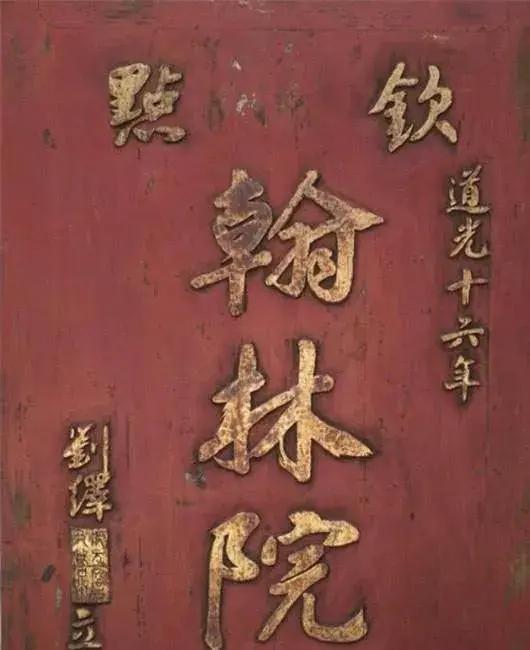 欽點
道光十六年
翰林院
劉繹
立